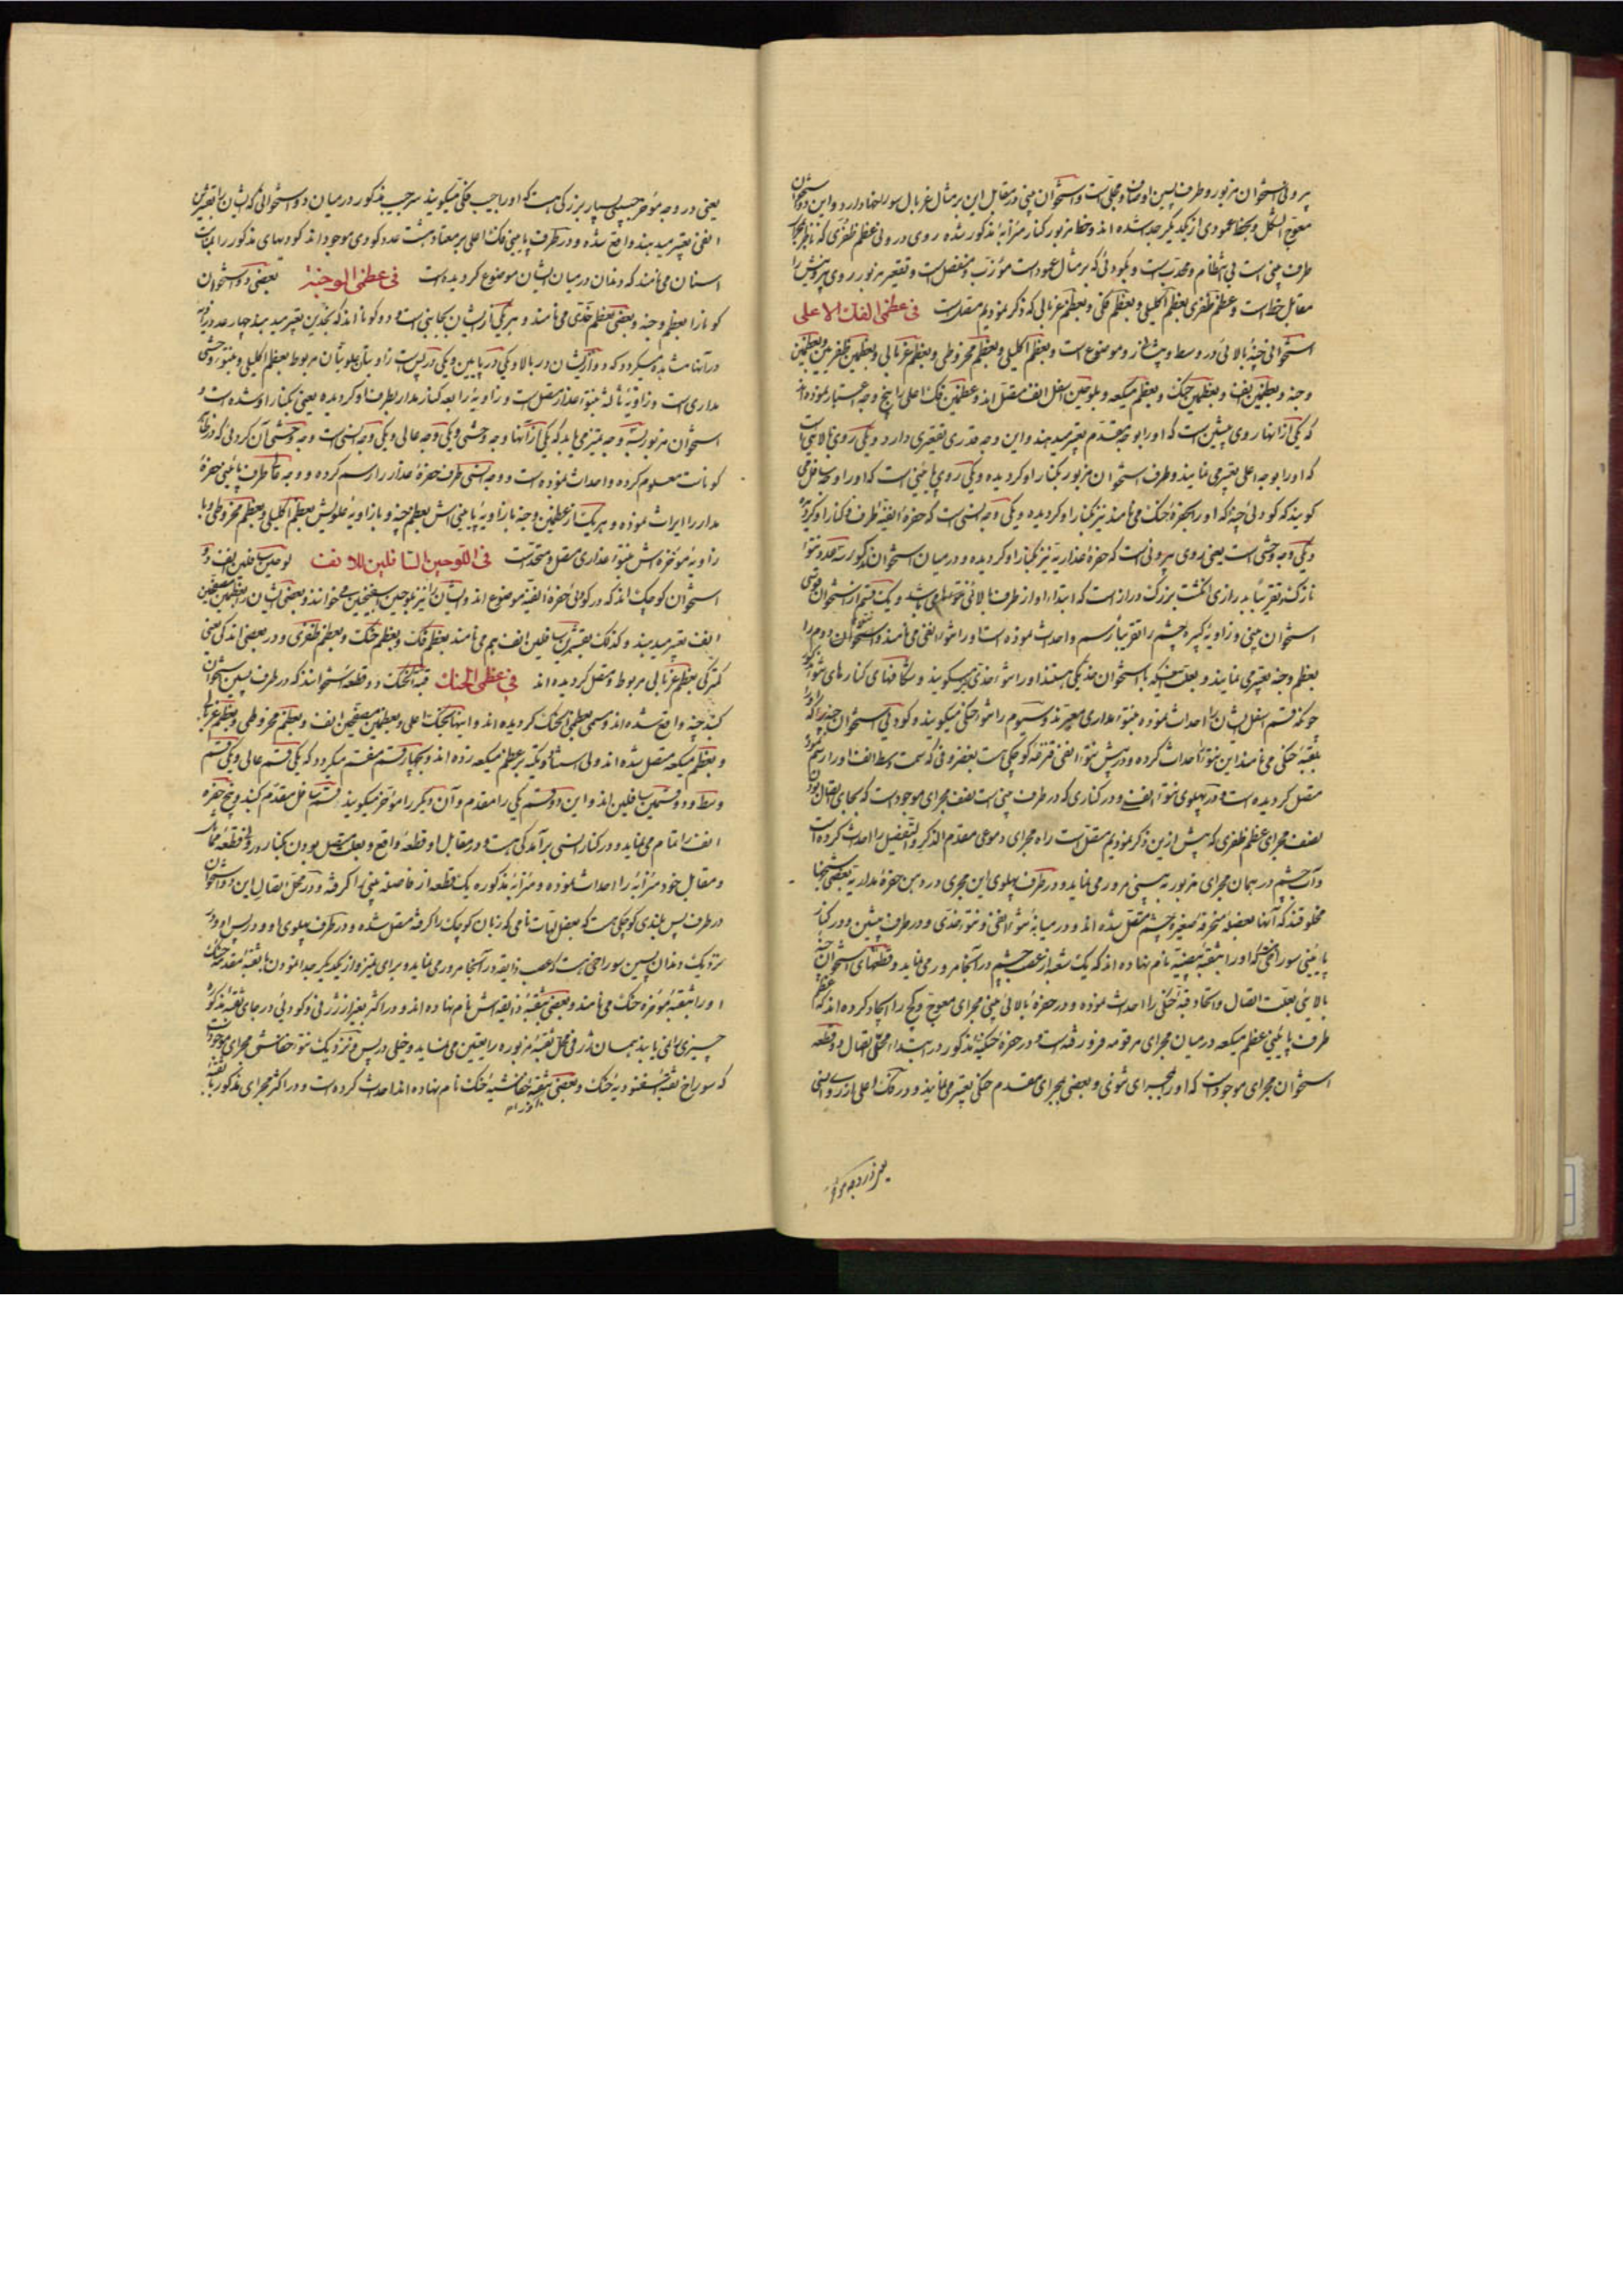 بیرونی استخوان مزبور و طرف پسین او صاف و مجلی است و استخوان بینی در مقابل این بر مثال غربال سوراخها دارد و این دو استخوان
معوج الشکل و بخط عمودی از یکدیگر جدا شده اند و خط مزبور کنار مزرابهٔ مذکور شده روی درونی عظم ظفری که ناظر بجانب
طرف بینی است بی انتظام و محدب است و بکودئی که بر مثال عمود است مؤرب و منفصل است و تقعیر مزبور روی بیرونیش را
مقابل خط است و عظم ظفری بعظم اکلیلی و بعظم فکی و بعظم غربالی که ذکر نمودیم متصل است فی عظمی الفك الاعلی
استخوانی چنهٔ بالائی در وسط و پیشانی رو موضوع است و بعظم اکلیلی و بعظم مخروطی و بعظم غربالی و بعظمین ظفریین و بعظمین
وجنه و بعظمین انف و بعظمین حنك و بعظم میکعه و بلوحین اسفل انف متصل اند و عظمین فك اعلی را پنج وجه اعتبار نموده اند
که یکی از انها روی پیشین است که اورا بوجه مقدم تعبیر میدهند و این وجه قدری تقعیری دارد و یکی روی بالایی است
که اورا بوجه اعلی تعبیر می نمایند و طرف استخوان مزبور بکنار او کردیده و یکی روی پایینی است که اورا وجه سافل می
کویند که کودئی چنه که اورا بحفرهٔ حنك می نامند نیز بکنار او کردیده و یکی وجه انسی است که حفرهٔ انفیه طرف و کنار او کردیده
و یکی وجه وحشی است یعنی روی بیرونی است که حفرهٔ عذاریه نیز بکنار او کردیده و در میان استخوان مذکور سه عدد نتوء
نازك و تقریبا بدرازی انکشت بزرك دراز است که ابتداء او از طرف بالائی
استخوان بینی و زاویهٔ کبیرهٔ چشم را تقریبا رسم و احداث نموده است اورا نتوء انفی می نامند و استخوان دوم را
بعظم وجنه تعبیری نمایند و بعلت اینکه با استخوان خد یکی هستند اورا نتوء خدی میکویند و شکافهای کنارهای
چونکه قسم اسفل ایشان را احداث نموده بنتوء مداری معبرند و سیوم را نتوء حنکی میکویند و کودئی استخوان چنه را که
بقبهٔ حنکی می نامند این نتوء احداث کرده و در پیش نتوء انفی قزقزهٔ کوچکی است بغضروفی که سمت وسط انف اورا رسم نموده
متصل کردیده است و در پهلوی نتوء انفی و در کناری که در طرف بینی است نصف مجرای موجود است که بجای اتصال بودن
نصف مجرای عظم ظفری که پیش ازین ذکر نمودیم متصل است راه مجرای دموعی مقدم الذکر و التفصیل را احداث کرده است
و آب چشم در همان مجرای مزبور به بینی مرور می نماید و در طرف پهلوی این مجری و در دهن حفرهٔ مداریه بعضی
مخلوقند که آنها بعضلهٔ منحرفهٔ صغیرهٔ چشم متصل شده اند و در میانهٔ نتوء انفی و نتوء خدی و در طرف پیشین و در کنار
پایینی سوراخی که اورا بثقبهٔ بیضیه نام نهاده اند که یك شعبه از عصب چشم در آنجا مرور می نماید و قطعهای استخوان چنهٔ
بالائی بعلت اتصال و اتحاد قبهٔ حنکی را احداث نموده و در حفرهٔ بالائی بینی مجرای معوج و کج را ایجاد کرده اند که عظم
طرف پایینی عظم میکعه در میان مجرای مرقومه فرو رفته است و در حفرهٔ حنکیهٔ مذکور در ابتداء محل اتصال دو قطعه
استخوان مجرای موجود است که اورا بمجرای نتوئی و بعضی بمجرای مقدم حنکی تعبیر می نمایند و در فك اعلی از روی انسی
یعنی در وجه مؤخر
یعنی در وجه مؤخر جیبی بسیار بزرکی هست که اورا جیب فکی میکویند سر جیب مذکور در میان دو استخوانی که ایشان را بقزقزتین
انفی تعبیر میدهند واقع شده و در طرف پایینی فك اعلی بر معتاد هشت عدد کودی موجود اند کودیهای مذکور را بنابت
اسنان می نامند که دندان در میان ایشان موضوع کردیده است فی عظمی الوجنه بعضی دو استخوان
کونا را بعظم وجنه و بعضی بعظم خدی می نامند و هر یکی از ایشان بجانبی است و دو کونا اند که بخدین تعبیر میدهند چهار عدد زاویه
در آنها مشاهده میکردد که دو از ایشان در بالا و یکی در پایین و یکی در پس است زاویتان علویتان مربوط بعظم اکلیلی و بنتوء وحشی
مداری است و زاویهٔ ثالثه بنتوء عذار متصل است و زاویهٔ رابعه کنار مدار بطرف او کردیده یعنی بکنار او شده است و
استخوان مزبور بسه وجه تمیز می یابد که یکی از آنها وجه وحشی و یکی وجه عالی و یکی وجه انسی است وجه وحشی آن کردئی که در ظاهر
کونا است معلوم کرده و احداث نموده است و وجه انسی طرف حفرهٔ عذار را رسم کرده و وجه عالی طرف پایینی حفرهٔ
مدار را ایراث نموده و هر یك از عظمین وجنه با زاویهٔ پایینی اش بعظم چنه و با زاویهٔ علویش بعظم اکلیلی و بعظم مخروطی و با
زاویهٔ مؤخره اش بنتوء عذاری متصل و متحد است فی اللوحین السافلین للانف لوحین سافلین انف دو
استخوان کوچك اند که در کودئی حفرهٔ انفیه موضوع اند و ایشان را نیز بلوحین اسفنجین می خوانند و بعضی ایشان را بعظمین اسفنجین
انف تعبیر میدهند و کذلك بقشرین سافلین انف هم می نامند بعظم فك و بعظم حنك و بعظم ظفری و در بعضی اندکی یعنی
کمترکی بعظم غربالی مربوط و متصل کردیده اند فی عظمی الحنك قبة الحنك دو قطعه استخوانند که در طرف پسین استخوان
کنبد چنه واقع شده اند و مسمی بعظمی الحنك کردیده اند و اینها بحنك اعلی و بعظمین اسفنجین انف و بعظم مخروطی و بعظم غربالی
و بعظم میکعه متصل شده اند ولی استناد و تکیه بر عظم میکعه زده اند و بچهار قسم منقسم میکردد که یکی قسم عالی و یکی قسم
وسط و دو قسمین سافلین اند و این دو قسم یکی را مقدم و آن دیکر را مؤخر میکویند قسم سافل مقدم کنبد و پنج حفره
انف را تمام می نماید و در کنار انسی برآمدکی هست و در مقابل او قطعهٔ واقع و بعلت متصل بودن بکنار
و مقابل خود مزرابه را احداث نموده و مزرابهٔ مذکوره یك قطعه از فاصلهٔ بینی را کرفته و در محل اتصال این دو استخوان
در طرف پس بلندی کوچکی هست که بعضل لهات نامی که زبان کوچك را کرفته متصل شده و در طرف پهلوی او و در پس او و در
نزدیك دندان پسین سوراخی هست که عصب ذایقه در آنجا مرور می نماید و برای تمیز و از یکدیکر جدا نمودن با ثقبهٔ مقدمهٔ حنك
اورا بثقبهٔ مؤخرهٔ حنك می نامند و بعضی بثقبهٔ ذایقه اش نام نهاده اند و در اکثر بغیر از ژرفی و کودئی در جای ثقبهٔ مذکوره
چیزی نمی یابند همان ژرفی محل ثقبهٔ مزبوره را یقین می نماید و خیلی در پس و نزدیك نتوء خفاشش مجرای موجود است
که سوراخ ثقبهٔ اسفنودیهٔ حنك و بعضی بثقبهٔ خفاشیهٔ حنك نام نهاده اند احداث کرده است و در اکثر مجرای مذکور با ثقبهٔ